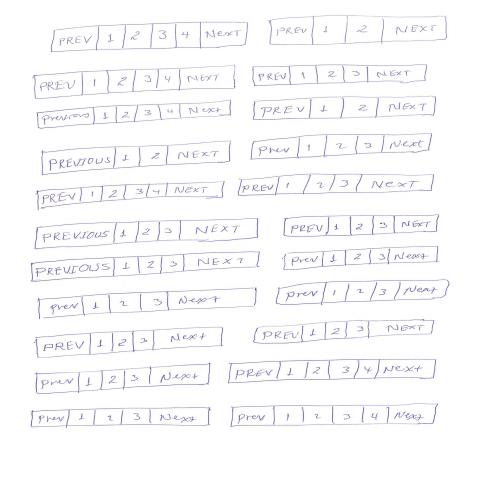 PREV 1 2 3 4 NexT
PREV 1 2 NEXT
PREV 1 2 3 4 NEXT
PREV 1 2 3 NEXT
Previous 1 2 3 4 Next
PREV 1 2 NEXT
PREVIOUS 1 2 NEXT
Prev 1 2 3 Next
PREV 1 2 3 4 NEXT
PREV 1 2 3 NEXT
PREVIOUS 1 2 3 NEXT
PREV 1 2 3 NEXT
PREVIOUS 1 2 3 NEXT
Prev 1 2 3 Next
Prev 1 2 3 Next
Prev 1 2 3 Next
PREV 1 2 3 Next
PREV 1 2 3 NEXT
Prev 1 2 3 Next
PREV 1 2 3 4 Next
Prev 1 2 3 Next
Prev 1 2 3 4 Next